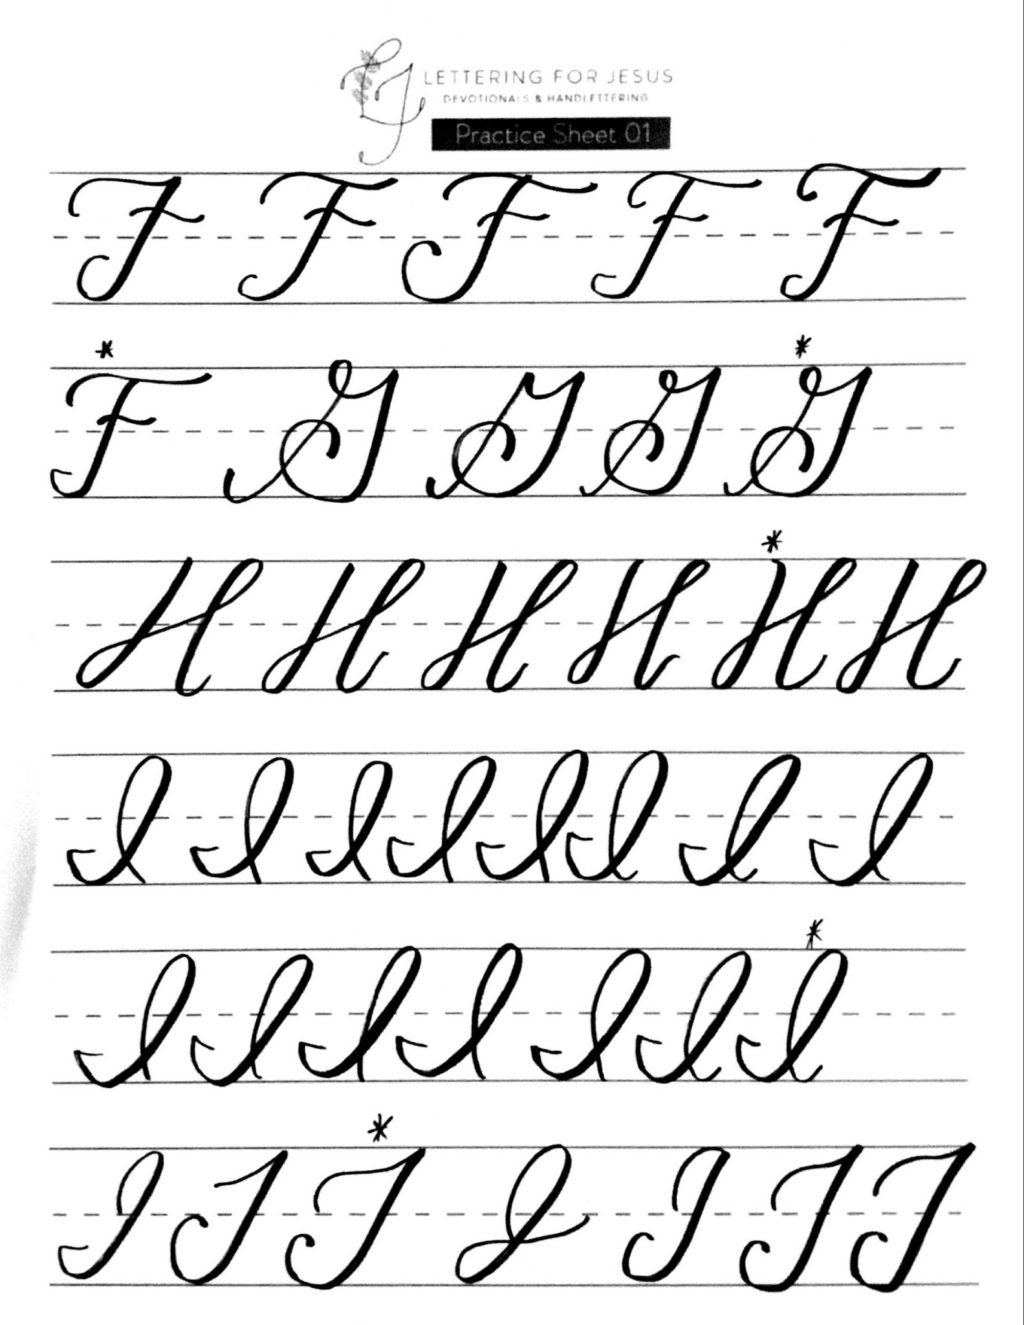 LETTERING FOR JESUS
DEVOTIONALS & HANDLETTERING
Practice Sheet 01
F F F F F
* *
F G G G G
*
H H H H H H
I I I I I I I I
*
I I I I I I I
*
J J J J J J J